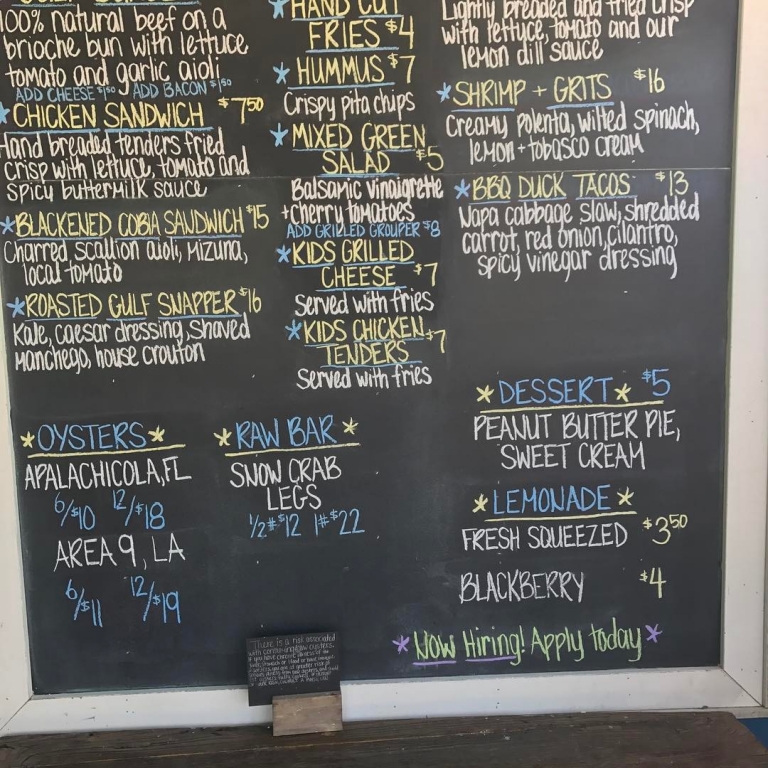 100% natural beef on a
brioche bun with lettuce
tomato and garlic aioli
ADD CHEESE $1.50 ADD BACON $1.50
CHICKEN SANDWICH $7.50
Hand breaded tenders fried
crisp with lettuce, tomato and
spicy buttermilk sauce
BLACKENED COBIA SANDWICH $15
Charred scallion aioli, Mizuna,
local tomato
ROASTED GULF SNAPPER $16
Kale, caesar dressing, Shaved
Manchego, house crouton
HAND CUT
FRIES $4
HUMMUS $7
Crispy pita chips
MIXED GREEN
SALAD $5
Balsamic vinaigrette
+cherry tomatoes
ADD GRILLED GROUPER $8
KIDS GRILLED
CHEESE $7
Served with fries
KIDS CHICKEN $7
TENDERS
Served with fries
Lightly breaded and fried crisp
with lettuce, tomato and our
lemon dill sauce
SHRIMP + GRITS $16
Creamy polenta, wilted spinach,
lemon + tobasco cream
BBQ DUCK TACOS $13
Napa cabbage slaw, shredded
carrot, red onion, cilantro,
spicy vinegar dressing
OYSTERS
APALACHICOLA, FL
6/$10 12/$18
AREA 9, LA
6/$11 12/$19
RAW BAR
SNOW CRAB
LEGS
1/2# $12 1# $22
DESSERT $5
PEANUT BUTTER PIE,
SWEET CREAM
LEMONADE
FRESH SQUEEZED $3.50
BLACKBERRY $4
Now Hiring! Apply today
There is a risk associated
with consuming raw oysters.